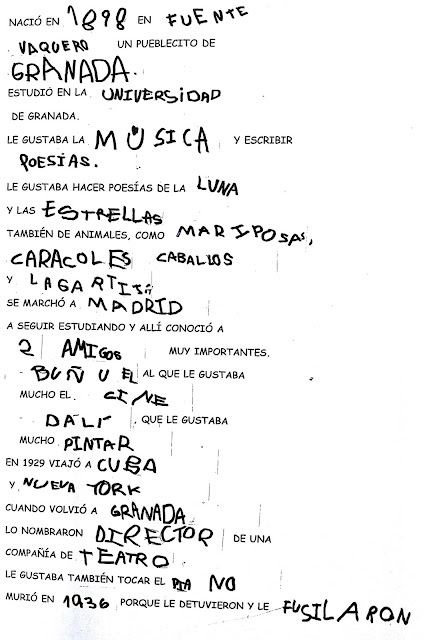 NACIÓ EN 1898 EN FUENTE
VAQUERO UN PUEBLECITO DE
GRANADA.
ESTUDIÓ EN LA UNIVERSIDAD
DE GRANADA.
LE GUSTABA LA MÚSICA Y ESCRIBIR
POESÍAS.
LE GUSTABA HACER POESÍAS DE LA LUNA
Y LAS ESTRELLAS
TAMBIÉN DE ANIMALES, COMO MARIPOSAS,
CARACOLES CABALLOS
Y LAGARTIJA
SE MARCHÓ A MADRID
A SEGUIR ESTUDIANDO Y ALLÍ CONOCIÓ A
2 AMIGOS MUY IMPORTANTES.
- BUÑUEL AL QUE LE GUSTABA
MUCHO EL CINE
- DALÍ , QUE LE GUSTABA
MUCHO PINTAR
EN 1929 VIAJÓ A CUBA
Y NUEVA YORK
CUANDO VOLVIÓ A GRANADA
LO NOMBRARON DIRECTOR DE UNA
COMPAÑÍA DE TEATRO
LE GUSTABA TAMBIÉN TOCAR EL PIANO
MURIÓ EN 1936 PORQUE LE DETUVIERON Y LE FUSILARON